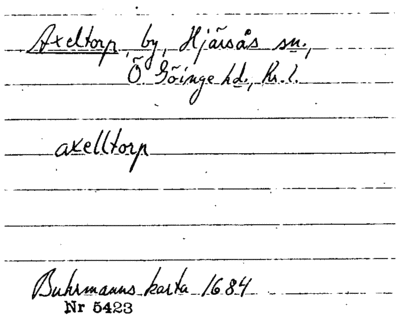 Axeltorp, by, Hjärsås sn.,
Ö Göinge hd., Kr. l.
axelltorp
Buhrmanns karta 1684
Nr 5423